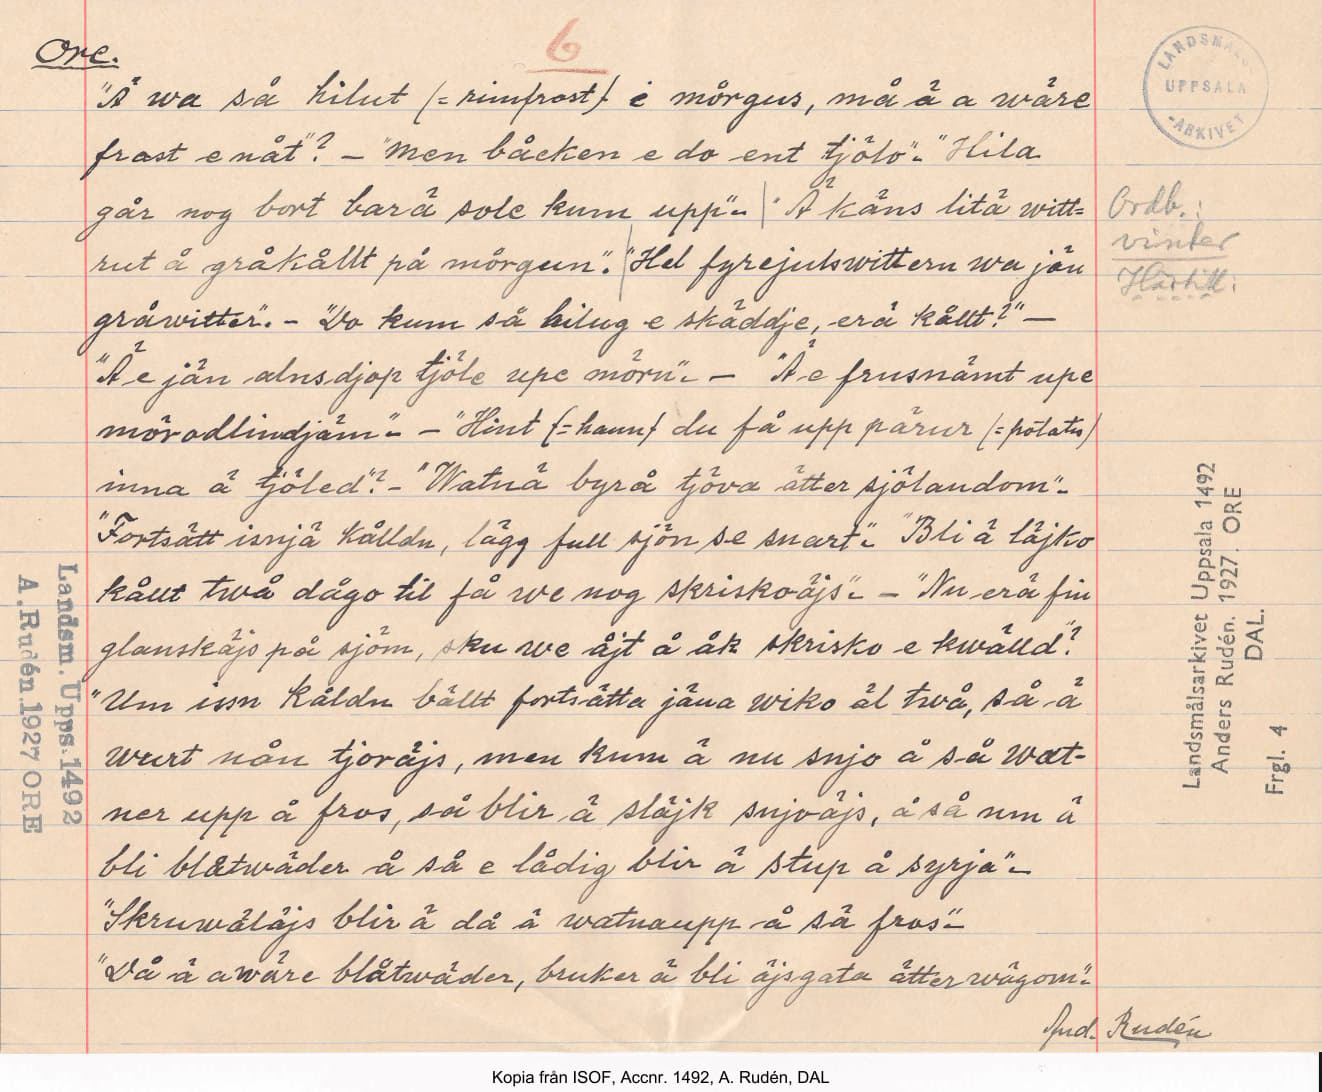 Ore.
6
"Ä wa så hilut (= rimfrost) i mårgus, må ä a wäre
frost e nåt"? – "Men båcken e do ent tjälo". "Hila
går nog bort barä sole kum upp". "Ä käns litä witt=
rut å gråkållt på mårgun". "Hel fyrejulswittern wa jän
gråwitter". – "Do kum så hilug e skäddje, erä kållt?" –
"Ä e jän alnsdjop tjöle upe mörn". – "Ä e frusnämt upe
mörodlindjäm". – "Hint (= hann) du få upp pärur (= potatis)
inna ä tjöled"? – "Watnä byrå tjöva ätter sjölandom".
"Fortsätt isnjä kålldn, lägg full sjön se snart". "Bli ä läjko
kållt twå dågo til få we nog skriskoäjs". – "Nu erä fin
glanskäjs på sjöm, sku we åjt å åk skrisko e kwälld"?
"Um issn kåldn bällt fortsätta jäna wiko äl två, så ä
wurt nån tjoräjs, men kum ä nu snjo å så wat-
ner upp å fros, så blir ä släjk snjoäjs, å så um ä
bli blåtwäder å så e lådig blir ä stup å syrja".
"Skruwäläjs blir ä då ä watnaupp å så fros".
"Då ä awäre blåtwäder, bruker ä bli äjsgata ätter wägom".
And. Rudén
LANDSMÅLS
UPPSALA
-ARKIVET
Ordb.:
vinter
Härtill:
Landsmålsarkivet Uppsala 1492
Anders Rudén. 1927. ORE
DAL.
Frgl. 4
Landsm. Upps. 1492
A. Rudén 1927 ORE
Kopia från ISOF, Accnr. 1492, A. Rudén, DAL